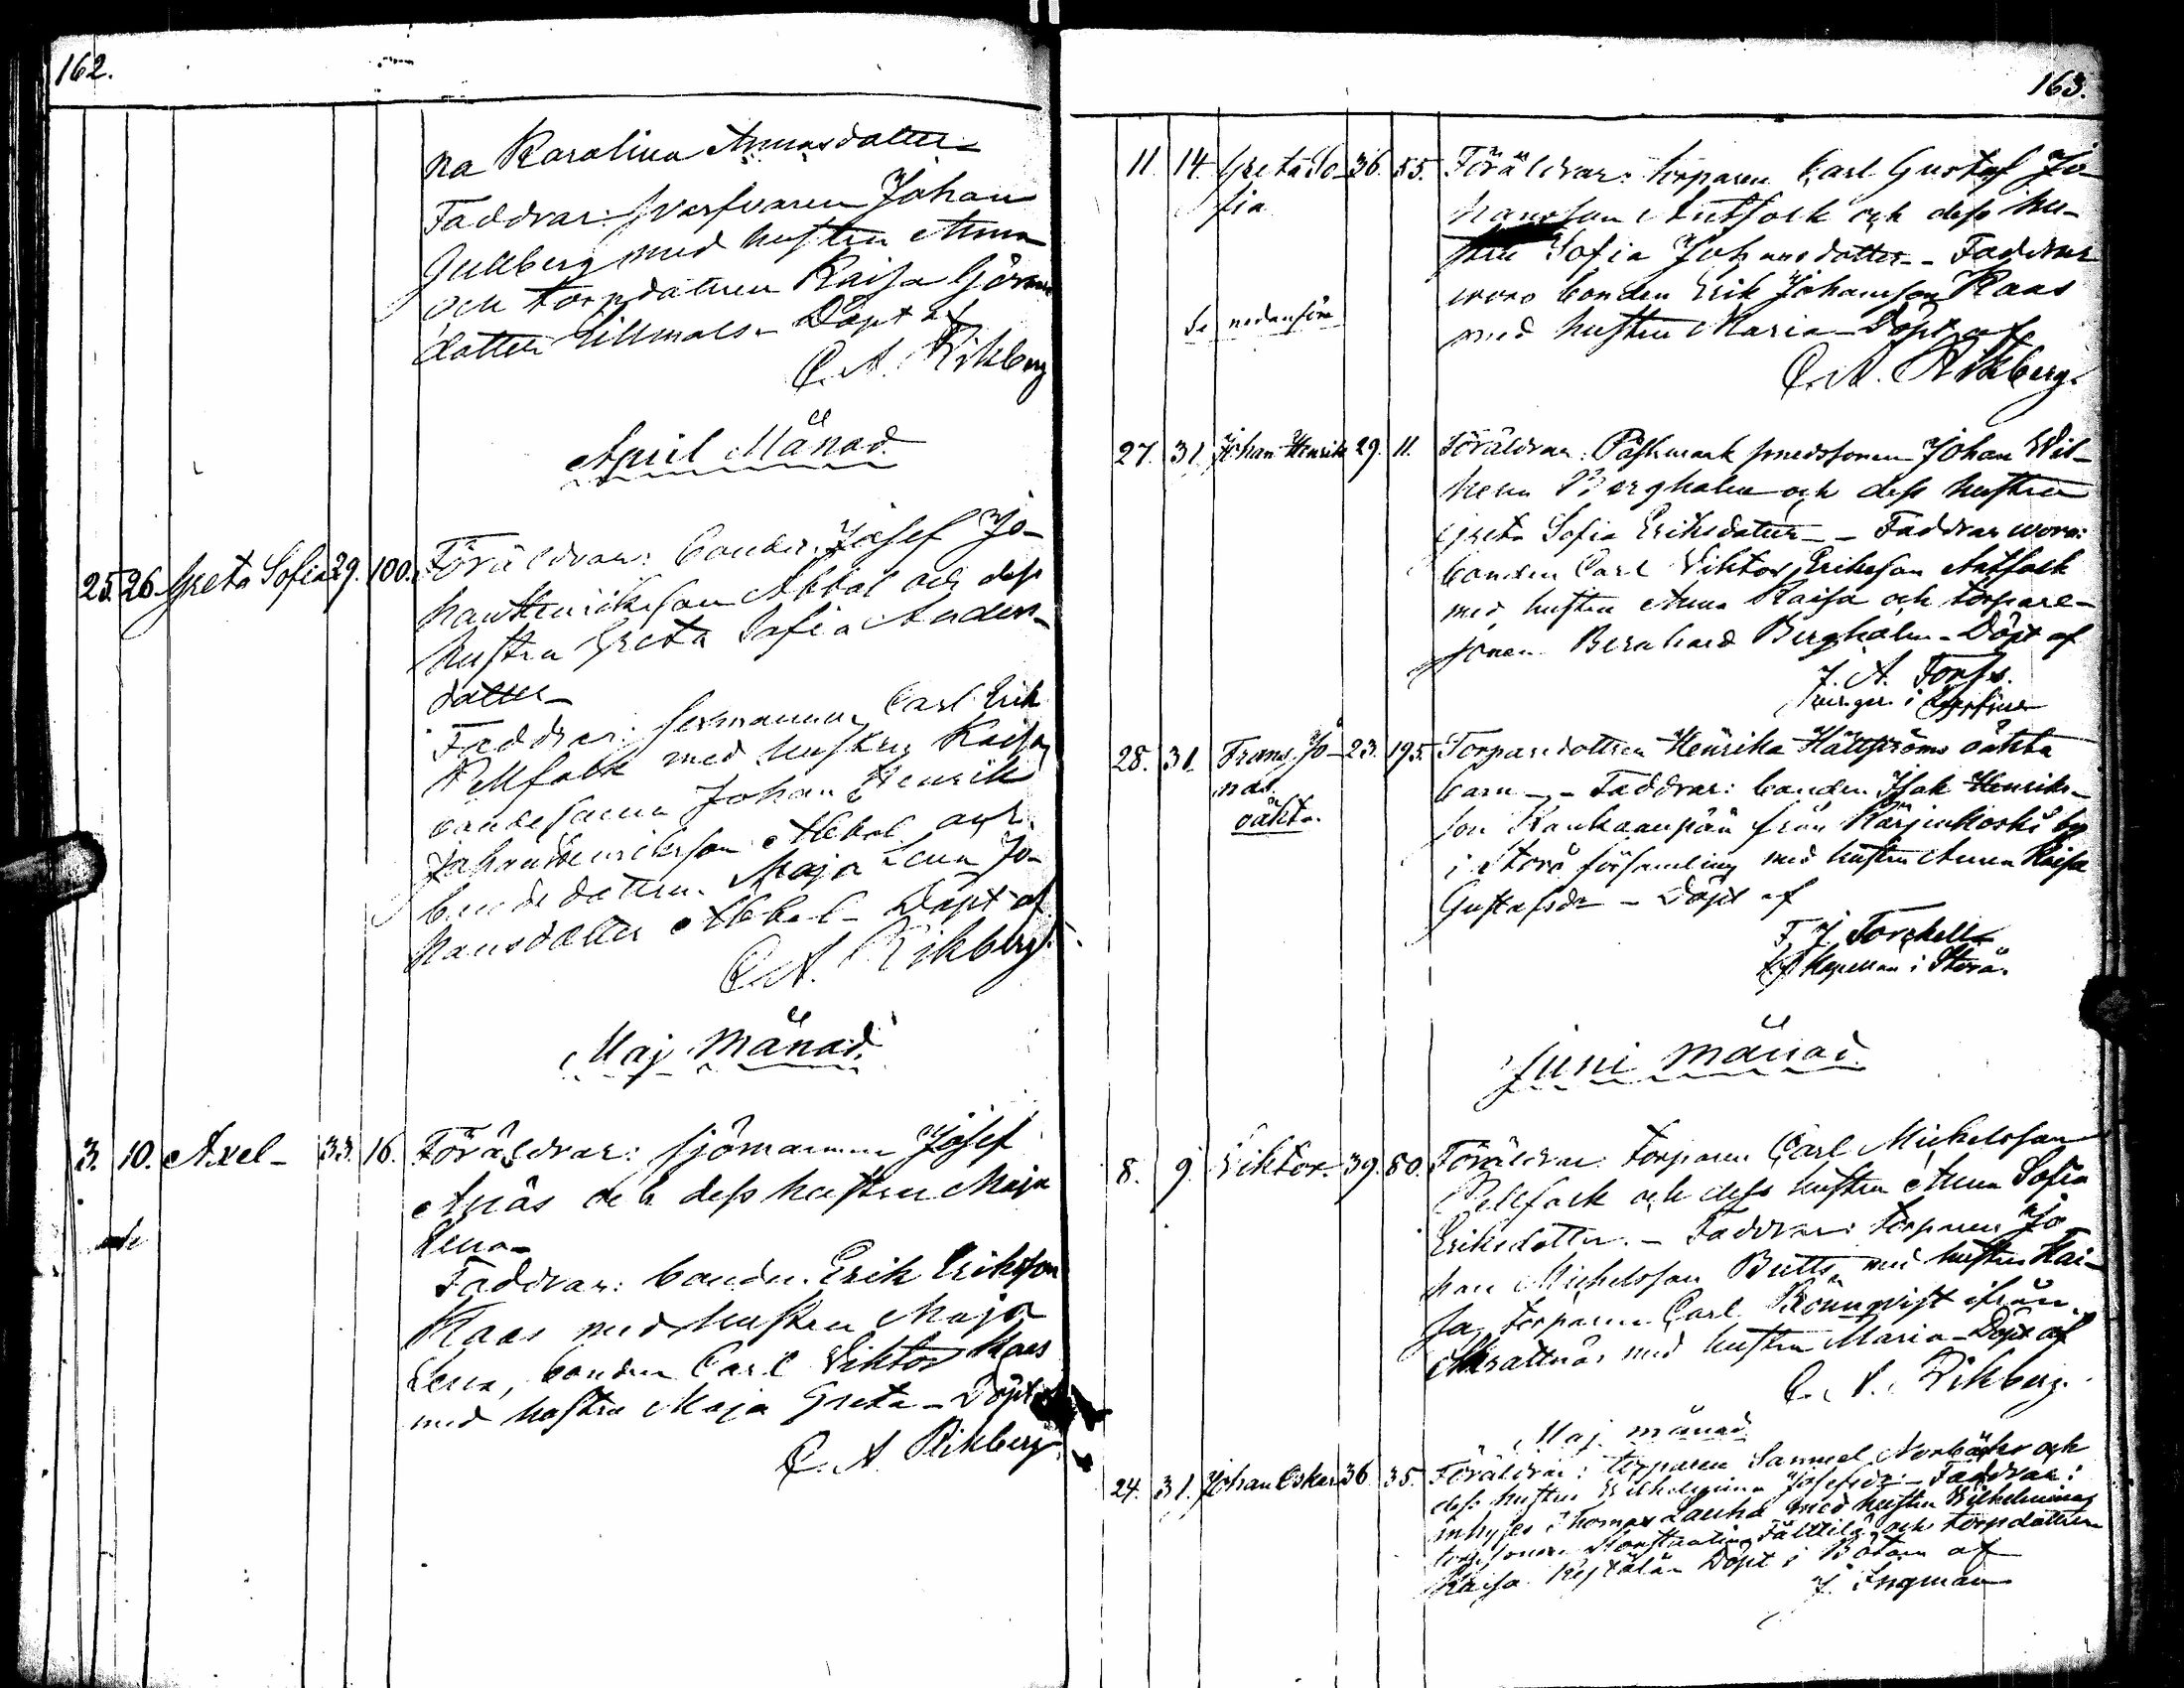 162.
na Karolina Annasdotter
Faddrar: Svarfvaren Johan
Gullberg med hustru Anna
och torpdottren Kaisa Görans
dotter Lillmåls. Döpt af
C. A. Rikberg
April Månad
25. 26. Greta Sofia 29. 100. Föräldrar: bonden Josef Jo-
han Henriksson Abbal och dess
hustru Greta Sofia Anders-
dotter
Faddrar: Sexmannen Carl Erik
Pellfolk med hustru Kaisa
bondesonen Johan Henrik
Johan Henriksson Abbal och
bondedottren Maja Lena Jo-
hansdotter Abbal. Döpt af
C. A. Rikberg
Maj Månad
3. 10. Axel 33. 16. Föräldrar: sjömannen Josef
Anäs och dess hustru Maja
Lena
Faddrar: bonden Erik Eriksson
Klaas med hustru Maja
Lena, bonden Carl Viktor Klaas
med hustru Maja Greta. Döpt
C. A. Rikberg
163.
11. 14. Greta So- 36. 55. Föräldrar: torparen Carl Gustaf Jo-
fia hansson Antfolk och dess hu-
stru Sofia Johansdotter. Faddrar
woro bonden Erik Johansson Klaas
Se nedanföre
med hustru Maria. Döpt af
C. A. Rikberg.
27. 31. Johan Henrik 29. 11. Föräldrar: Påskmark smedssonen Johan Wil-
helm Bergholm och dess hustru
Greta Sofia Eriksdotter. Faddrar woro:
bonden Carl Viktor Eriksson Antfolk
med hustru Anna Kaisa och torpare-
sonen Bernhard Bergholm. Döpt af
J. A. Forss.
28. 31. Frans Jo- 23. 195. Torparedottren Henrika Hällströms oäkta
nas barn. Faddrar: bonden Isak Henriks-
oäkta. son Kankaanpää från Kärjenkoski by
i Storå församling med hustru Anna Kaisa
Gustafsdr. Döpt af
F. J. Forshell
Kapellan i Storå.
Juni månad.
8. 9. Viktor. 39. 80. Föräldrar: torparen Carl Mickelsson
Pellfolk och dess hustru Anna Sofia
Eriksdotter. Faddrar: torparen Jo-
han Mickelsson Butts med hustru Kai-
sa, torparen Carl Rönnqvist ifrån
Skrattnäs med hustru Maria. Döpt af
C. A. Rikberg.
Maj månad
24. 31. Johan Oskar 36 35. Föräldrar: torparen Samuel Norrbäck och
dess hustru Wilhelmina Josefsdr. Faddrar:
inhyses Thomas Lauha med hustru Wilhelmina,
torpsonen Konstantin Fälttilä och torpdottren
Kaisa Döpt i Bötom af
J. Ingman